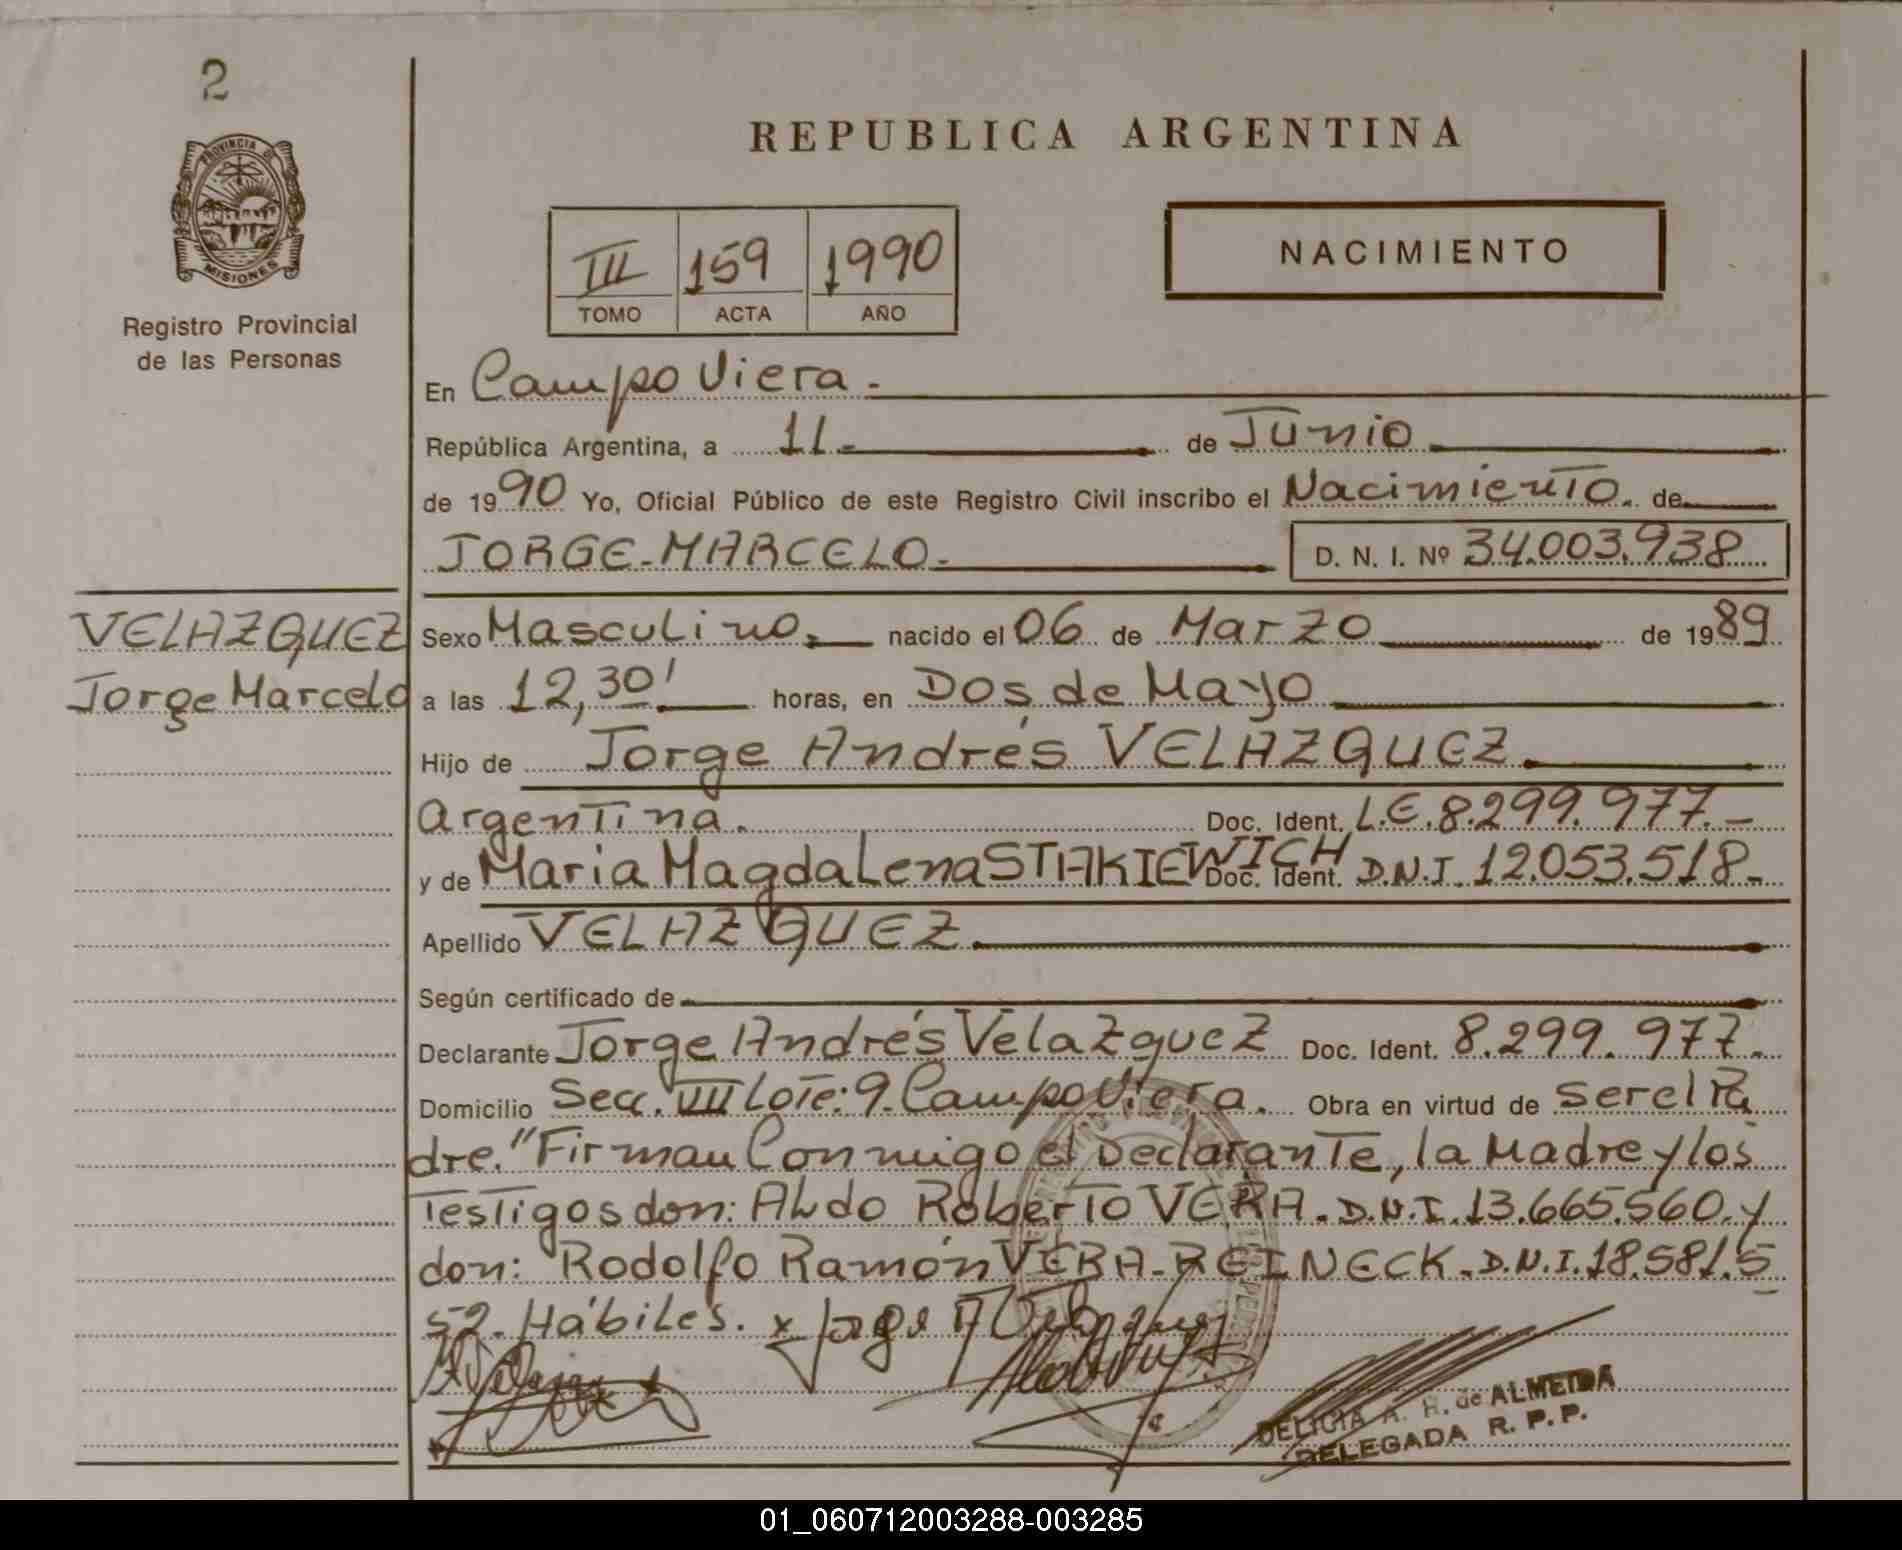 2
REPUBLICA ARGENTINA
PROVINCIA DE
MISIONES
Registro Provincial
de las Personas
III 159 1990
TOMO ACTA AÑO
NACIMIENTO
En Campo Viera.
República Argentina, a 11 de Junio
de 1990 Yo, Oficial Público de este Registro Civil inscribo el Nacimiento. de
JORGE-MARCELO. D. N. I. Nº 34.003.938
VELAZQUEZ
Jorge Marcelo
Sexo Masculino. nacido el 06 de Marzo de 1989
a las 12,30' horas, en Dos de Mayo
Hijo de Jorge Andrés VELAZQUEZ
Argentina. Doc. Ident. L.E. 8.299.977.-
y de Maria Magdalena STAKIEWICH Doc. Ident. D.N.I. 12.053.518-
Apellido VELAZQUEZ
Según certificado de
Declarante Jorge Andrés Velazquez Doc. Ident. 8.299.977.
Domicilio Secc. VIII Lote: 9. Campo Viera. Obra en virtud de ser el Pa
dre." Firman Conmigo el Declarante, la Madre y los
Testigos don: Aldo Roberto VERA. D.N.I. 13.665.560. y
don: Rodolfo Ramón VERA-REINECK. D.N.I. 18.581.5
52. Hábiles. x Jorge A Velazquez
DELICIA A. R. de ALMEIDA
DELEGADA R. P. P.
01_060712003288-003285